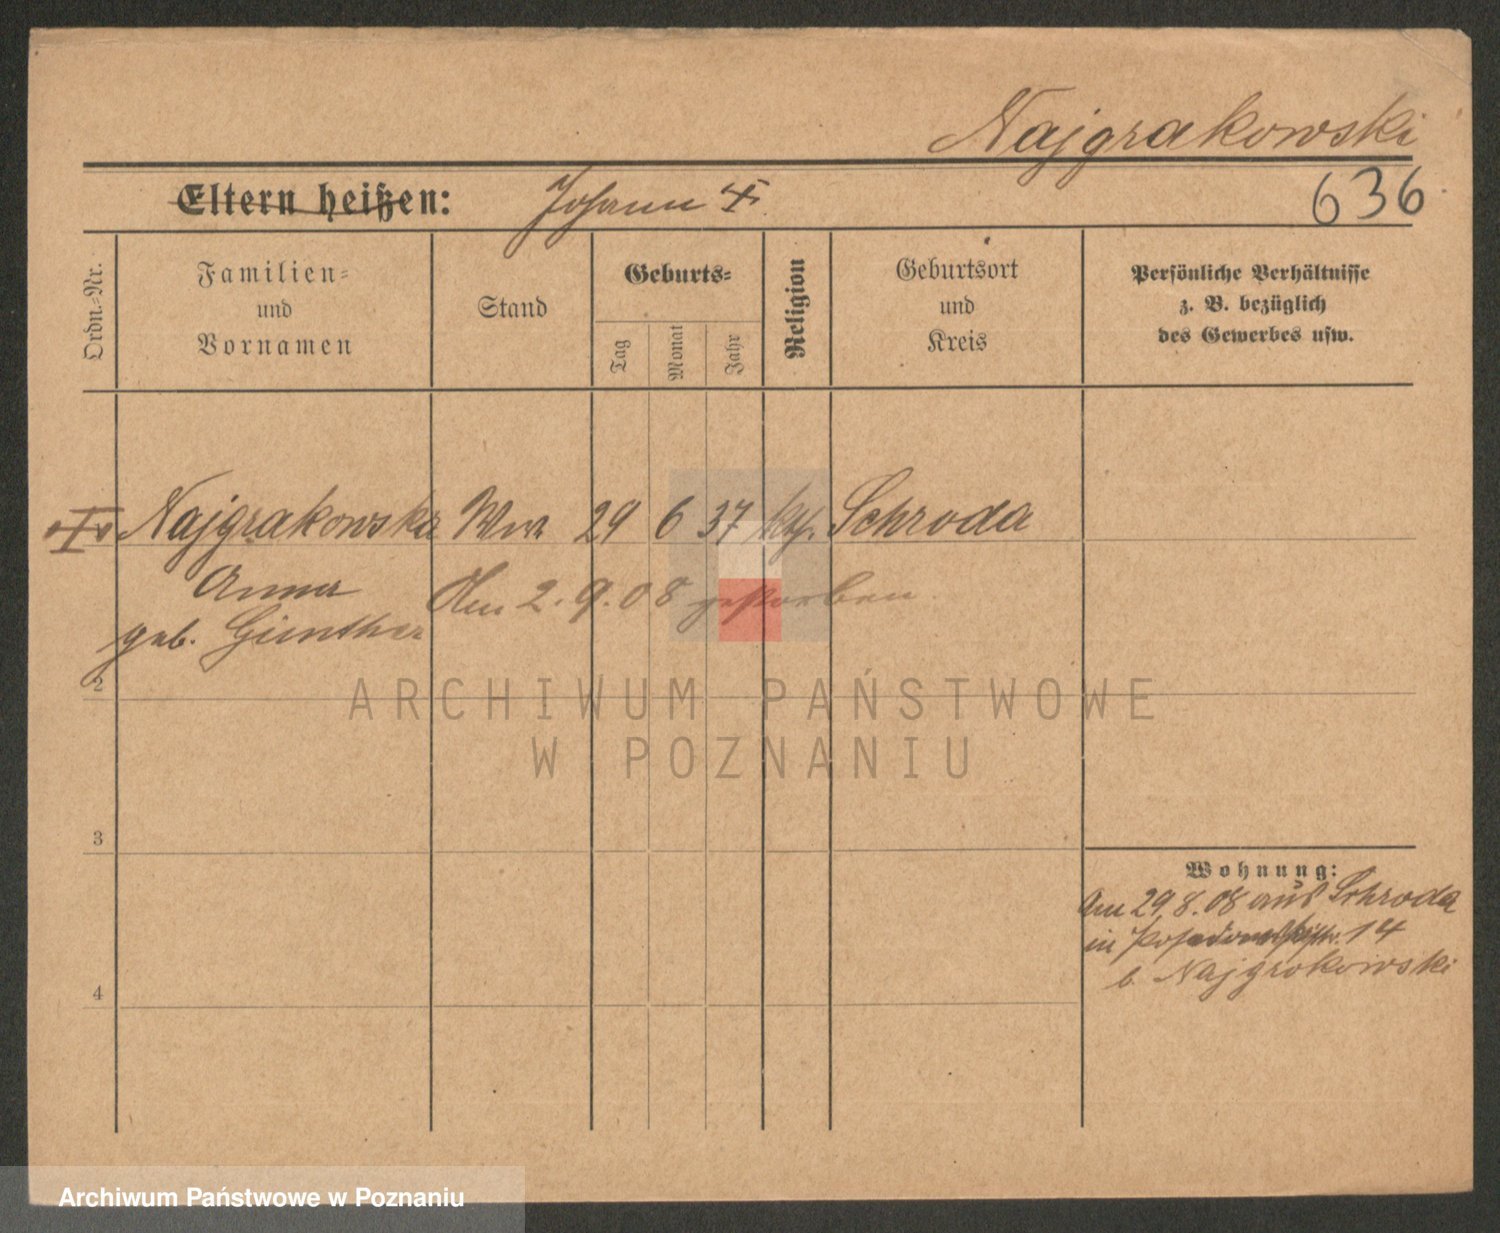 Najgrakowski
Eltern heißen: Johann
636
Ordn.-Nr.
Familien-
und
Vornamen
Stand
Geburts-
Tag
Monat
Jahr
Religion
Geburtsort
und
Kreis
Persönliche Verhältnisse
z. B. bezüglich
des Gewerbes usw.
Najgrakowska Ww 29 6 37 kth. Schroda
Anna Am 2.9.08 gestorben.
geb. Günther
2
3
4
Wohnung:
Am 29.8.08 aus Schroda
in 14
b. Najgrakowski
ARCHIWUM PAŃSTWOWE
W POZNANIU
Archiwum Państwowe w Poznaniu